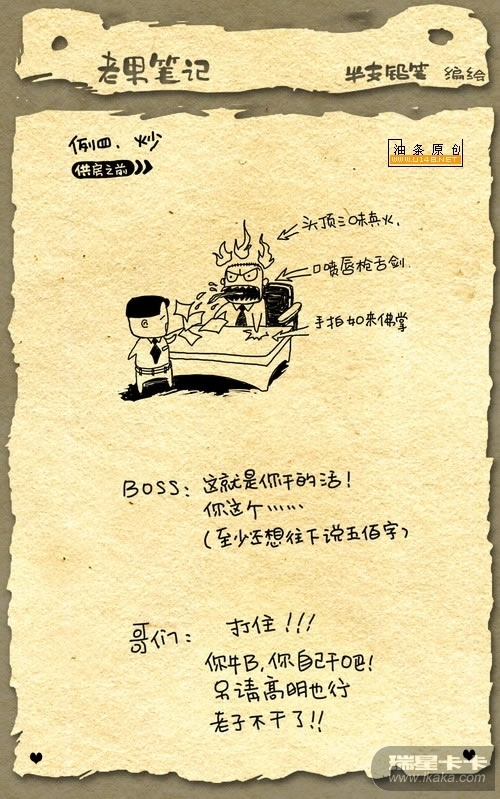 老果笔记
半支铅笔 编绘
例四、炒
油条原创
WWW.U148.NET
供房之前
头顶三味真火.
口喷唇枪舌剑.
手拍如来佛掌
BOSS: 这就是你干的活!
你这个……
(至少还想往下说五佰字)
哥们: 打住!!!
你牛B,你自己干吧!
另请高明也行
老子不干了!!
瑞星卡卡
www.ikaka.com